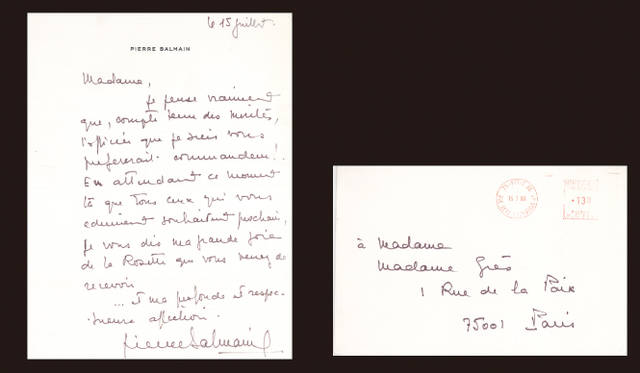 le 15 juillet.
PIERRE BALMAIN
Madame,
Je pense vraiment
que, compte tenu des mérites,
l'officier que je suis vous
préférerait commandeur!
En attendant ce moment
là que tous ceux qui vous
admirent souhaitent prochain,
je vous dis ma grande joie
de la Rosette que vous venez de
recevoir
... et ma profonde et respec-
tueuse affection.
Pierre Balmain
15.7.80
à Madame
Madame Grès
1 Rue de la Paix
75001 Paris